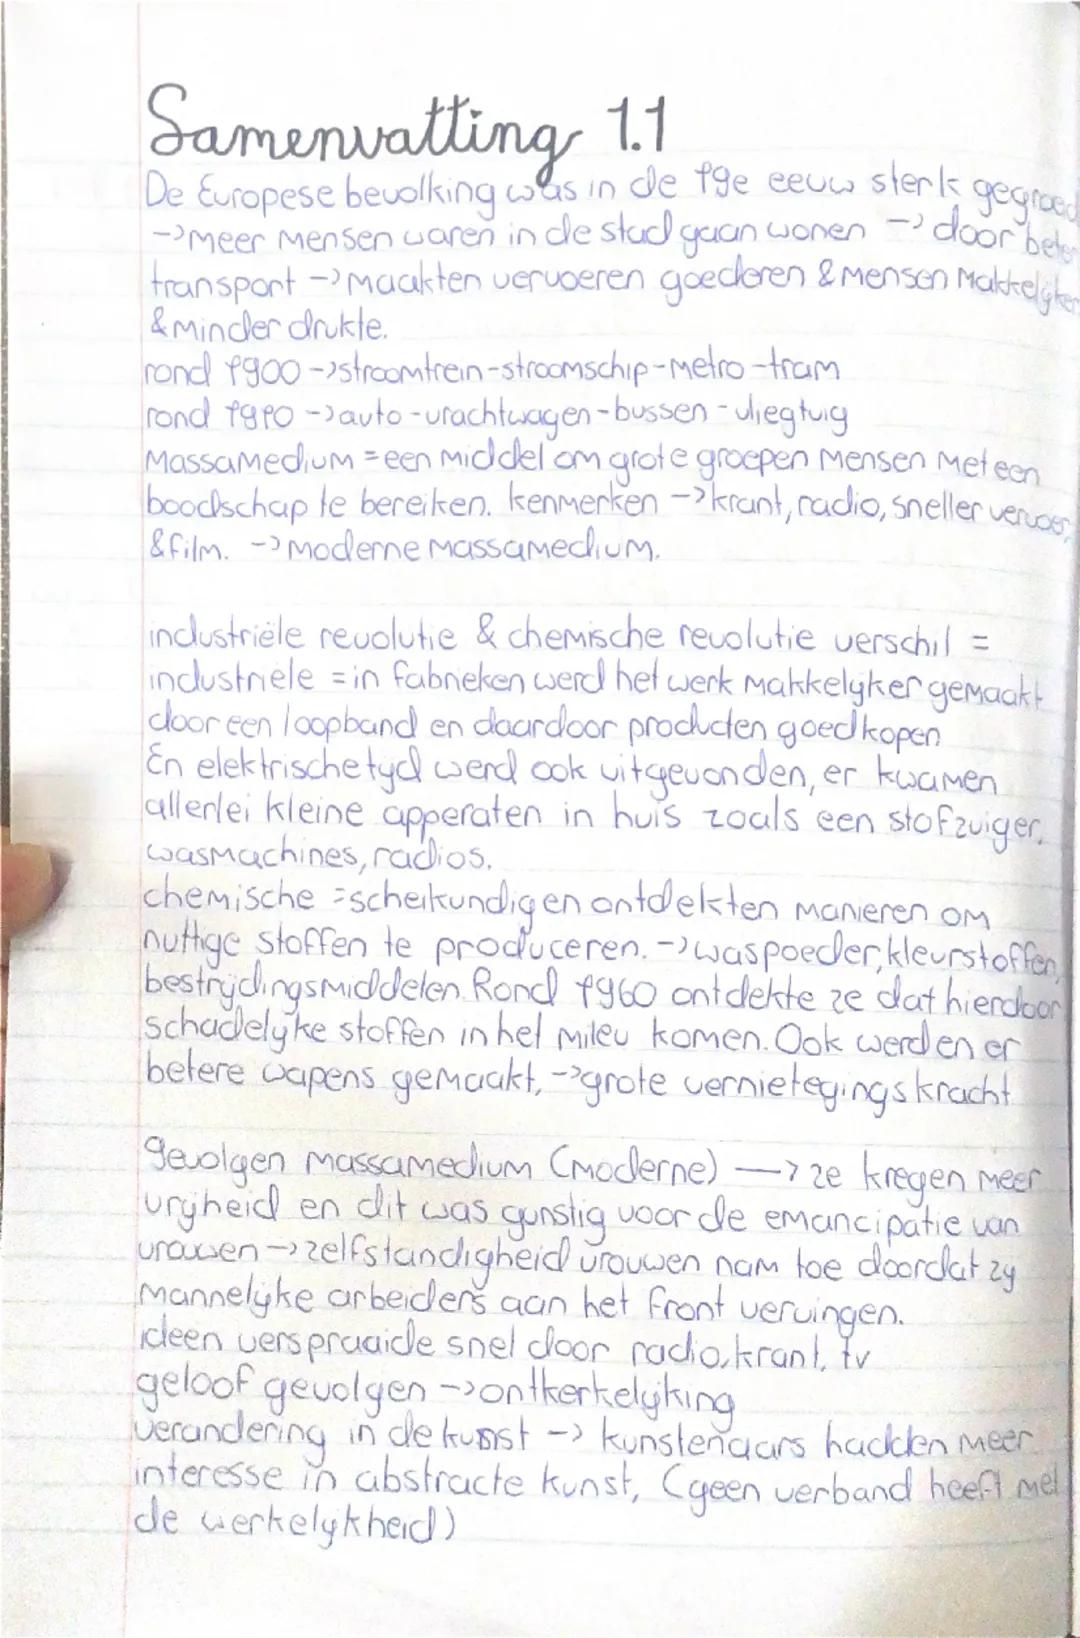 Samenvatting 1.1
De Europese bevolking was in de 19e eeuw sterk gegroeid
-> meer mensen waren in de stad gaan wonen -> door beter
transport -> maakten vervoeren goederen & mensen makkelijker
& minder drukte.
rond 1900 -> stroomtrein - stroomschip - metro - tram
rond 1910 -> auto - vrachtwagen - bussen - vliegtuig
Massamedium = een middel om grote groepen mensen met een
boodschap te bereiken. kenmerken -> krant, radio, sneller vervoer,
& film. -> moderne massamedium.
industriële revolutie & chemische revolutie verschil =
industriële = in fabrieken werd het werk makkelijker gemaakt
door een loopband en daardoor producten goedkopen
En elektrischetyd werd ook uitgevonden, er kwamen
allerlei kleine apperaten in huis zoals een stofzuiger,
wasmachines, radios.
chemische = scheikundigen ontdekten manieren om
nuttige stoffen te produceren. -> waspoeder, kleurstoffen,
bestrijdingsmiddelen. Rond 1960 ontdekte ze dat hierdoor
schadelijke stoffen in het mileu komen. Ook werden er
betere wapens gemaakt, -> grote vernietegingskracht
gevolgen massamedium (moderne) -> ze kregen meer
vrijheid en dit was gunstig voor de emancipatie van
vrouwen -> zelfstandigheid vrouwen nam toe doordat zij
mannelijke arbeiders aan het front vervingen.
ideen verspraaide snel door radio, krant, tv
geloof gevolgen -> ontkerkelijking
verandering in de kunst -> kunstenaars hadden meer
interesse in abstracte kunst, (geen verband heeft met
de werkelijkheid)